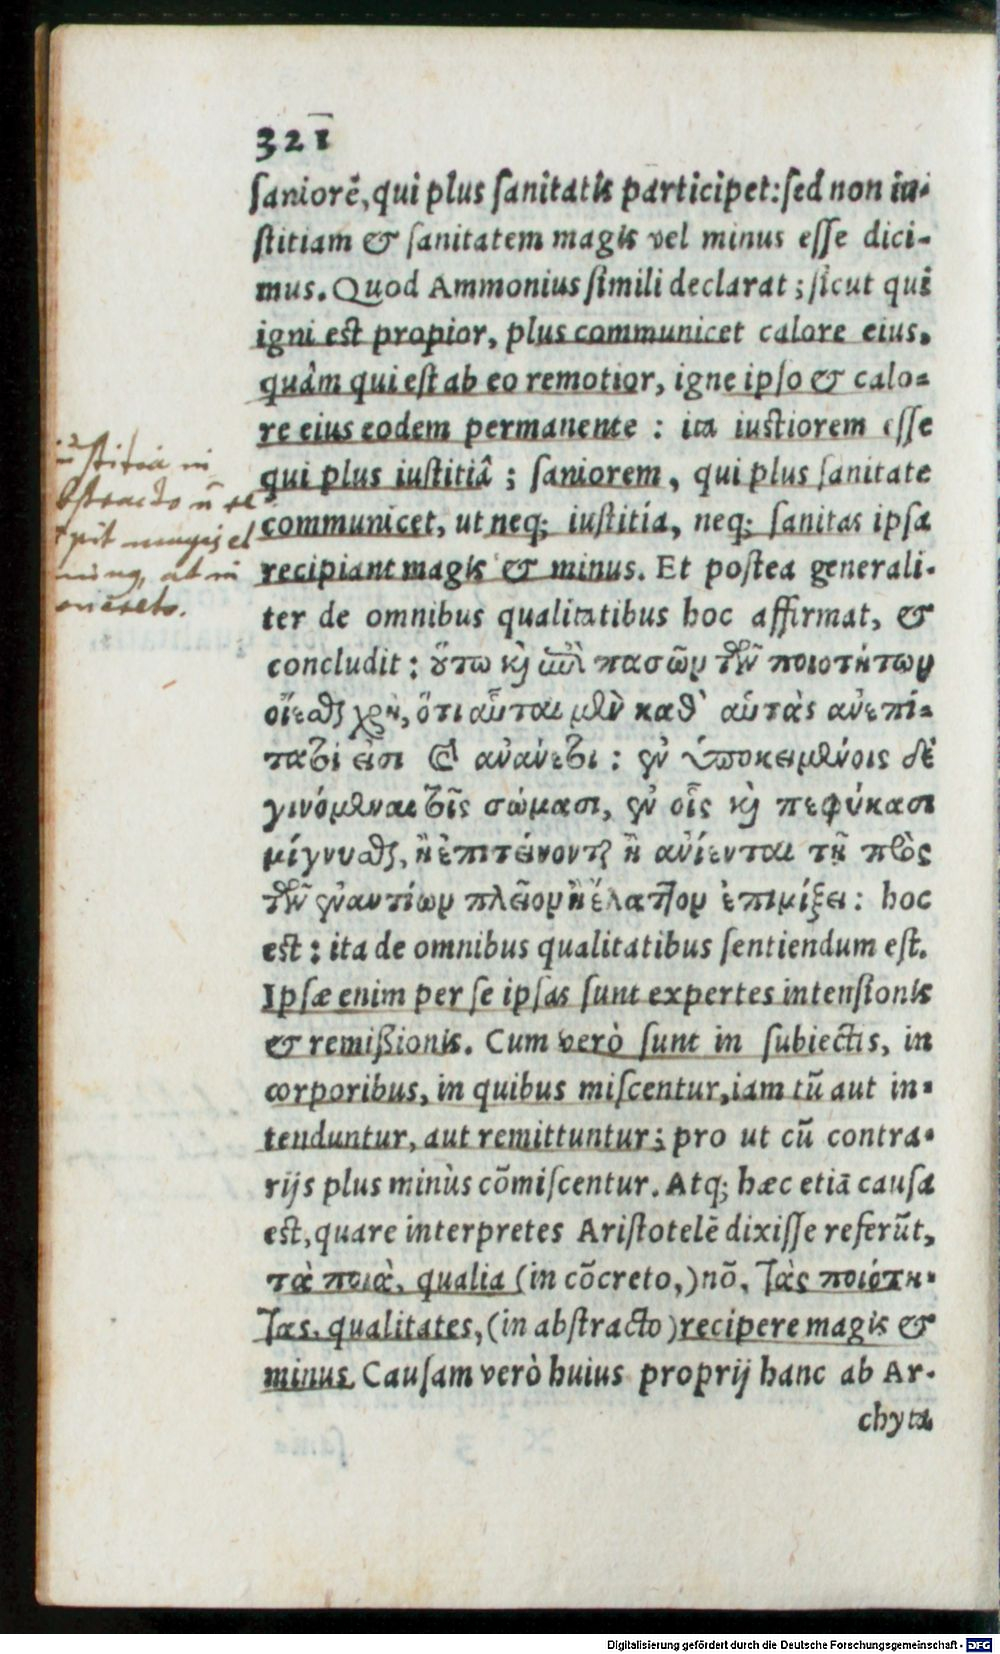 321
ſaniorē, qui plus ſanitatis participet: ſed non iu-
ſtitiam & ſanitatem magis vel minus eſſe dici-
mus. Quod Ammonius ſimili declarat; ſicut qui
igni est propior, plus communicet calore eius,
quàm qui eſt ab eo remotior, igne ipſo & calo-
re eius eodem permanente : ita iuſtiorem eſſe
qui plus iuſtitiâ ; ſaniorem, qui plus ſanitate
communicet, ut neq; iuſtitia, neq; ſanitas ipſa
recipiant magis & minus. Et poſtea generali-
ter de omnibus qualitatibus hoc affirmat, &
concludit : ὅτω καὶ ἐπὶ πασῶν τῶν ποιοτήτων
οἴεσθαι χρὴ, ὅτι αὗται μὲν καθ᾽ αὑτὰς ἀνεπί-
τατοί εἰσι καὶ ἀνάνετοι : ἐν ὑποκειμένοις δὲ
γινόμεναι τοῖς σώμασι, ἐν οἷς καὶ πεφύκασι
μίγνυσθαι, ἢ ἐπιτείνονται ἢ ἀνίενται τῇ πρὸς
τῶν ἐναντίων πλεῖον ἢ ἔλαττον ἐπιμίξει : hoc
est : ita de omnibus qualitatibus ſentiendum eſt.
Ipſæ enim per ſe ipſas ſunt expertes intenſionis
& remißionis. Cum verò ſunt in ſubiectis, in
corporibus, in quibus miſcentur, iam tū aut in-
tenduntur, aut remittuntur ; pro ut cū contra-
rijs plus minùs cōmiſcentur. Atq; hæc etiā cauſa
est, quare interpretes Ariſtotelē dixiſſe referūt,
τὰ ποιὰ, qualia (in cōcreto,) nō, τὰς ποιότη-
τας, qualitates, (in abſtracto) recipere magis &
minus. Cauſam verò huius proprij hanc ab Ar-
chyta
ſtitia in
bſtracto
magis
at in
Digitalisierung gefördert durch die Deutsche Forschungsgemeinschaft - DFG